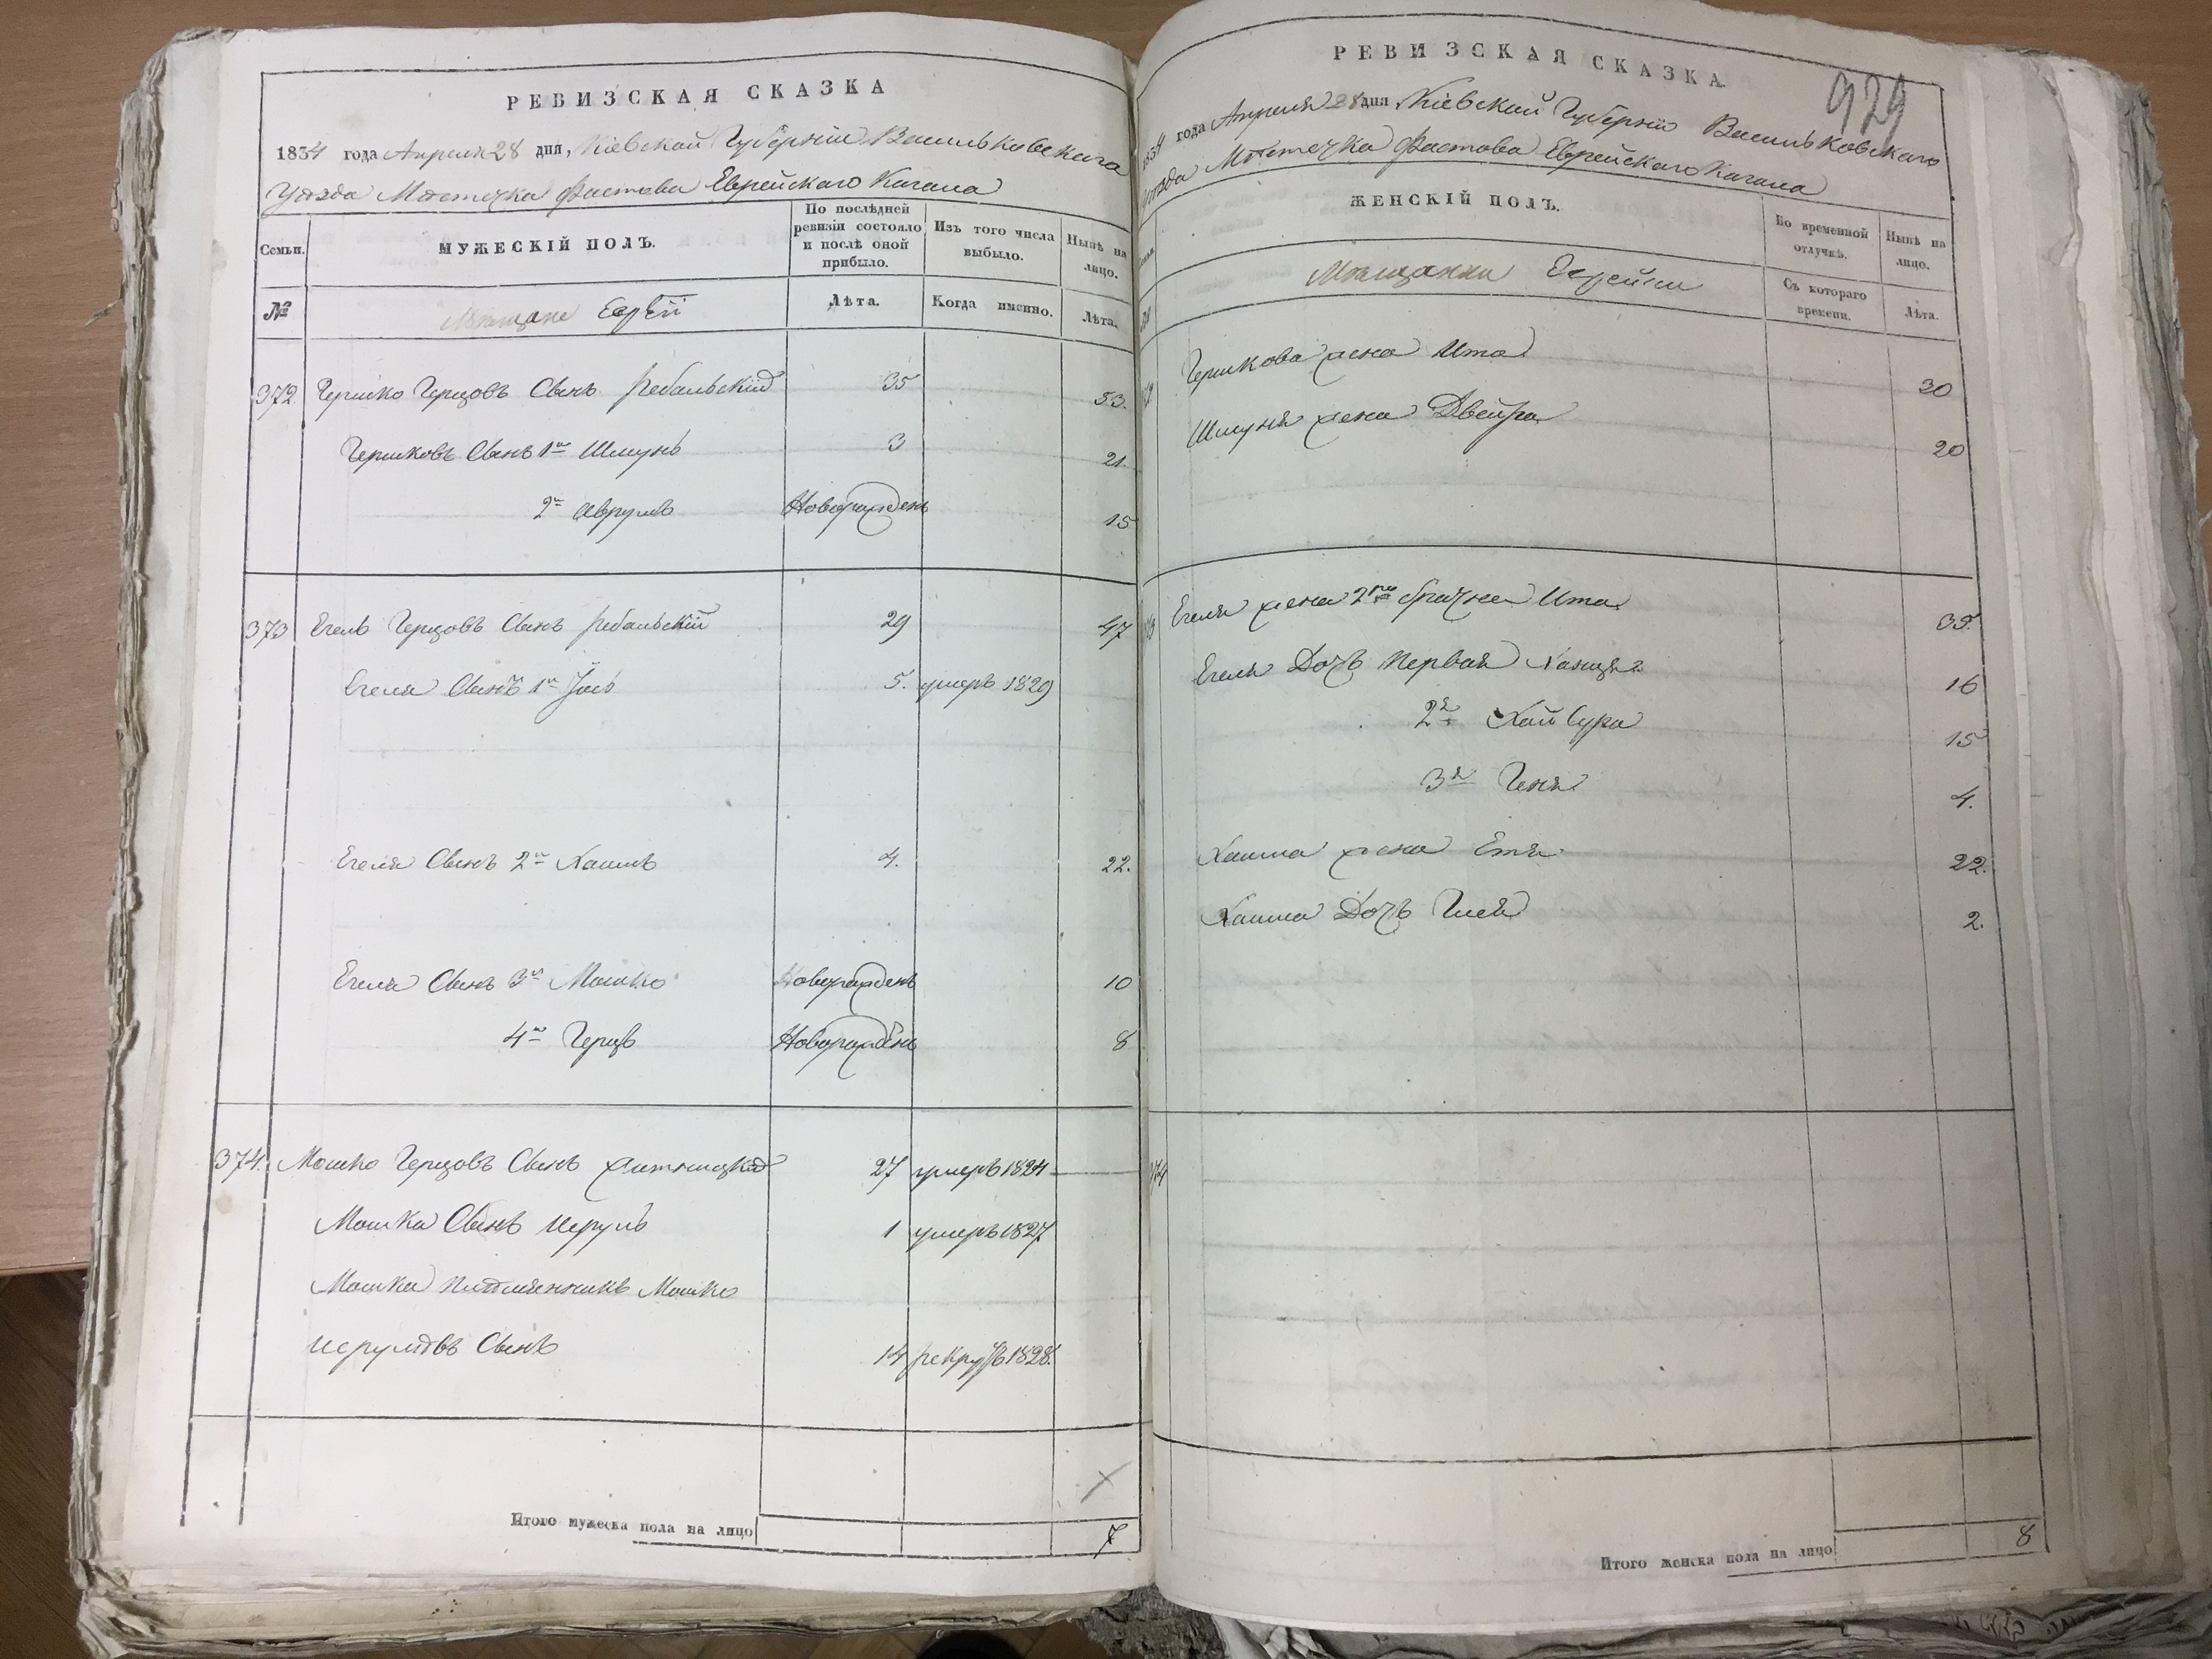 РЕВИЗСКАЯ СКАЗКА
1834 года Апреля 28 дня, Кіевской Губерніи Васильковскаго
Уѣзда Мѣстечка Фастова Еврейскаго Кагала
Семьи.
МУЖЕСКІЙ ПОЛЪ.
По послѣдней ревизіи состояло и послѣ оной прибыло.
Изъ того числа выбыло.
Нынѣ на лицо.
№
Мѣщане Евреи
Лѣта.
Когда именно.
Лѣта.
372 Гершко Герцовъ Сынъ 35 53.
Гершковъ Сынъ 1й Шмунь 3 21.
2й Аврумъ Новорожденъ 15
373 Егель Герцовъ Сынъ 29 47
Егеля Сынъ 1й Іось 5. умеръ 1829
Егеля Сынъ 2й Хаимъ 4. 22.
Егеля Сынъ 3й Мошко Новорожденъ 10
4й Герцъ Новорожденъ 8
374. Мошко Герцовъ Сынъ 27 умеръ 1824
Мошка Сынъ Иерулъ 1 умеръ 1827
Мошка племянникъ Мошко
Сынъ 14 рекрутъ 1828.
Итого мужеска пола на лицо 7
РЕВИЗСКАЯ СКАЗКА.
929
1834 года Апреля 28 дня Кіевской Губерніи Васильковскаго
Уѣзда Мѣстечка Фастова Еврейскаго Кагала
ЖЕНСКІЙ ПОЛЪ.
Во временной отлучкѣ.
Нынѣ на лицо.
Мѣщанки Еврейки
Съ котораго времени.
Лѣта.
Гершкова жена Ита 30
Шмуня жена Двейра 20
Егеля жена 2го брачна Ита 35.
Егеля Дочь Первая 16
2я Хай Сура 15
3я Геня 4.
Хаима жена Етя 22.
Хаима Дочь 2.
374
Итого женска пола на лицо 8